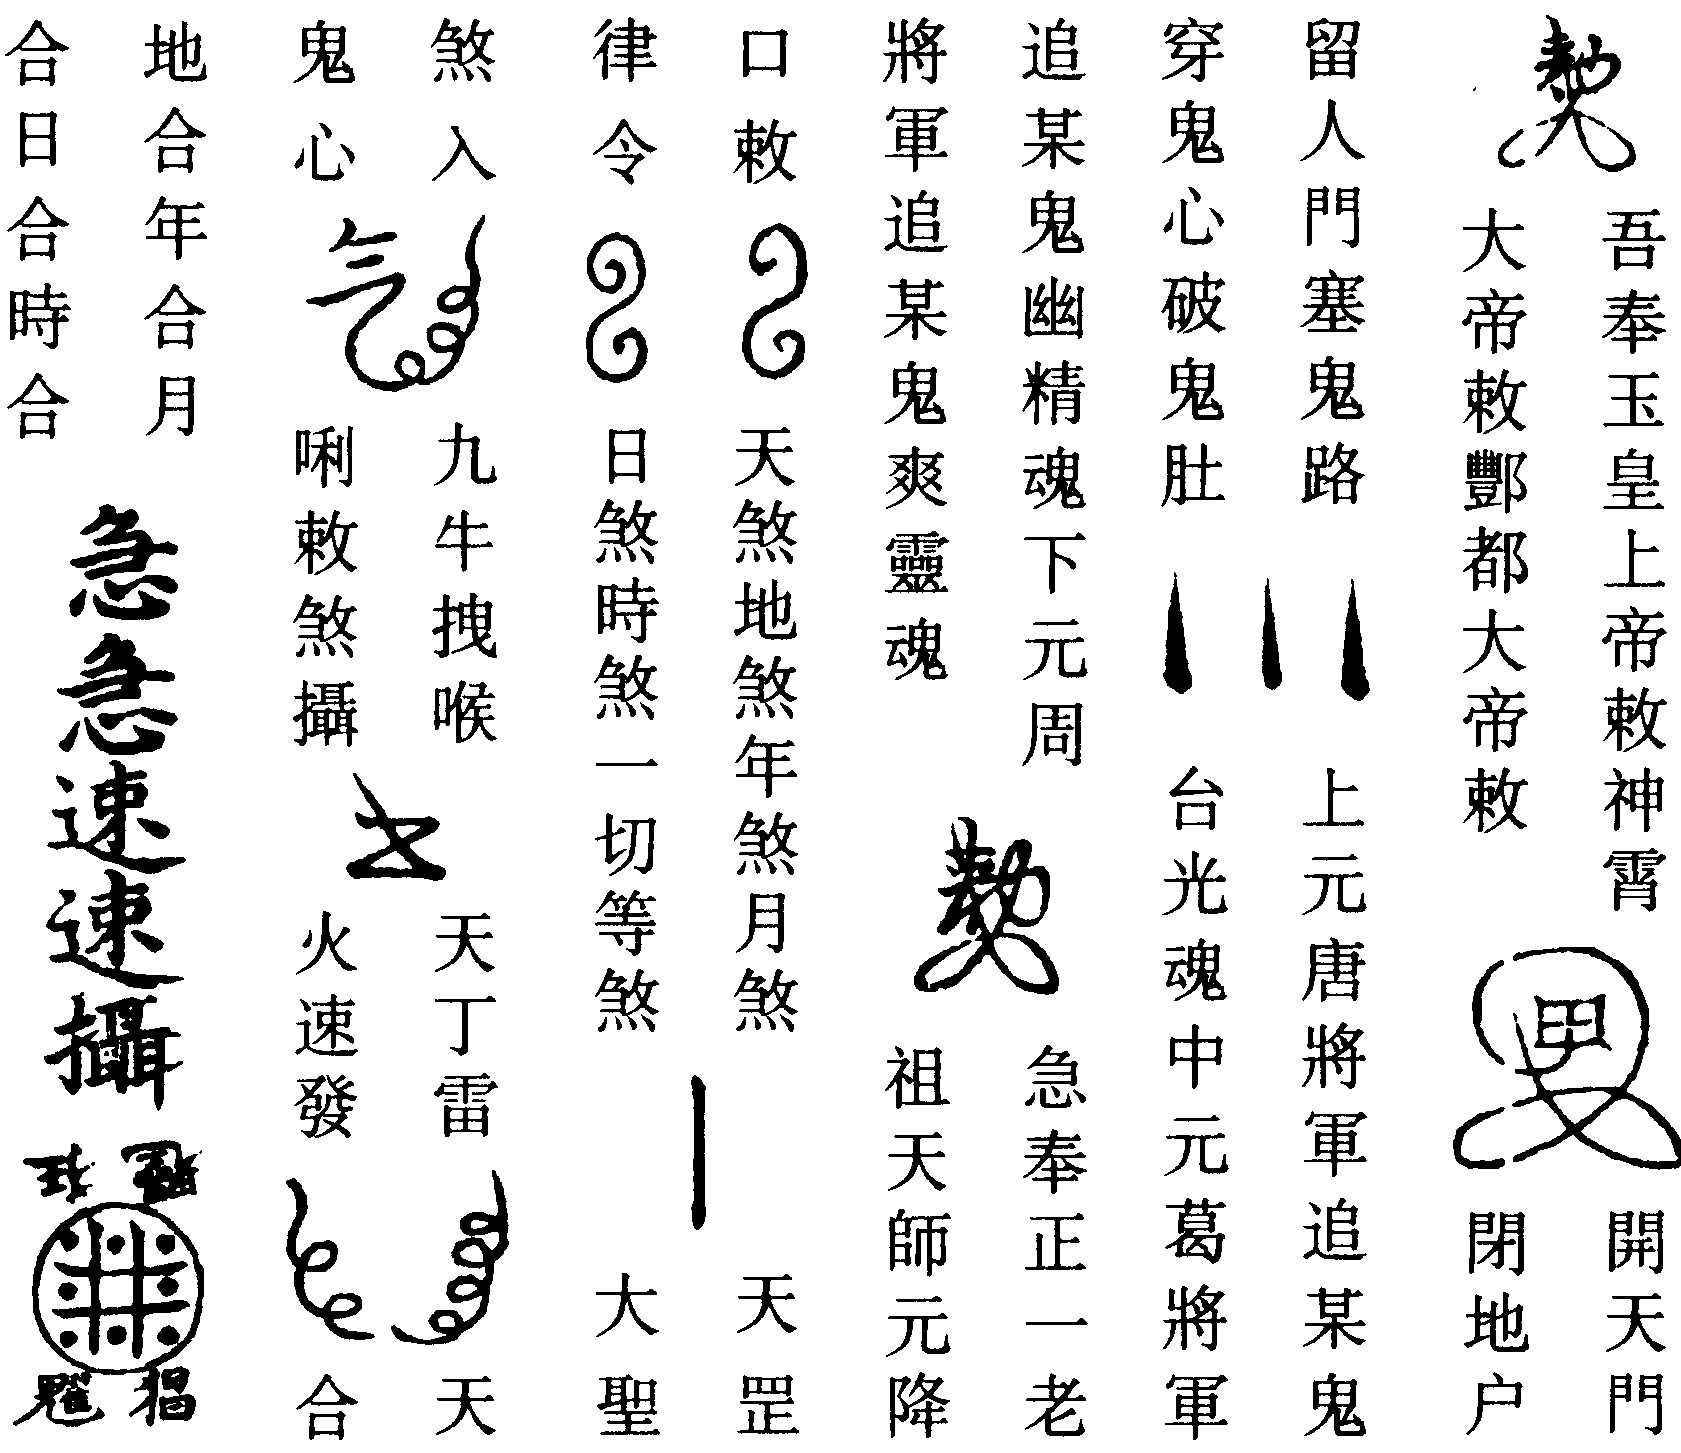 吾奉玉皇上帝敕神霄
大帝敕酆都大帝敕
開天門
閉地户
留人門塞鬼路
穿鬼心破鬼肚
上元唐將軍追某鬼
台光魂中元葛將軍
追某鬼幽精魂下元周
將軍追某鬼爽靈魂
急奉正一老
祖天師元降
口敕
律令
天煞地煞年煞月煞
日煞時煞一切等煞
天罡
大聖
煞入
鬼心
九牛拽喉
唎敕煞攝
天丁雷
火速發
天
合
地合年合月
合日合時合
急急速速攝